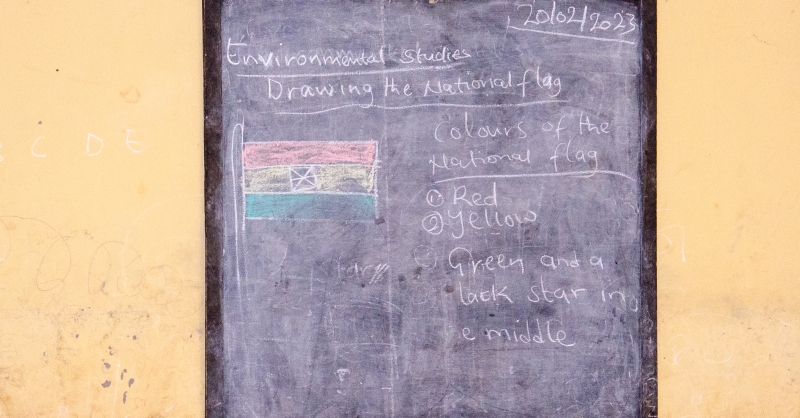 20/02/2023
Environmental studies
Drawing the National flag
Colours of the
National flag
① Red
② Yellow
Green and a
lack star in
e middle
C D E